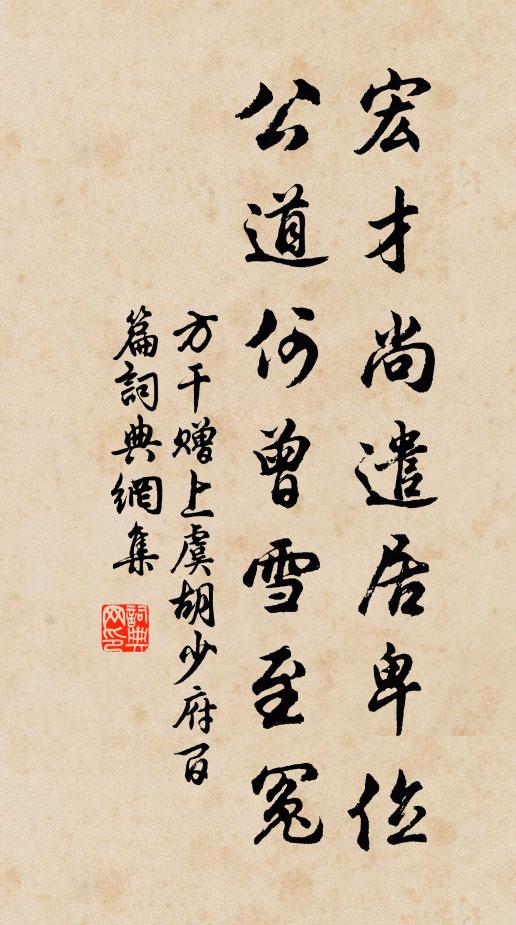 宏才尚遣居卑位
公道何曾雪至冤
方干赠上虞胡少府百
篇词典網集
詞典网印